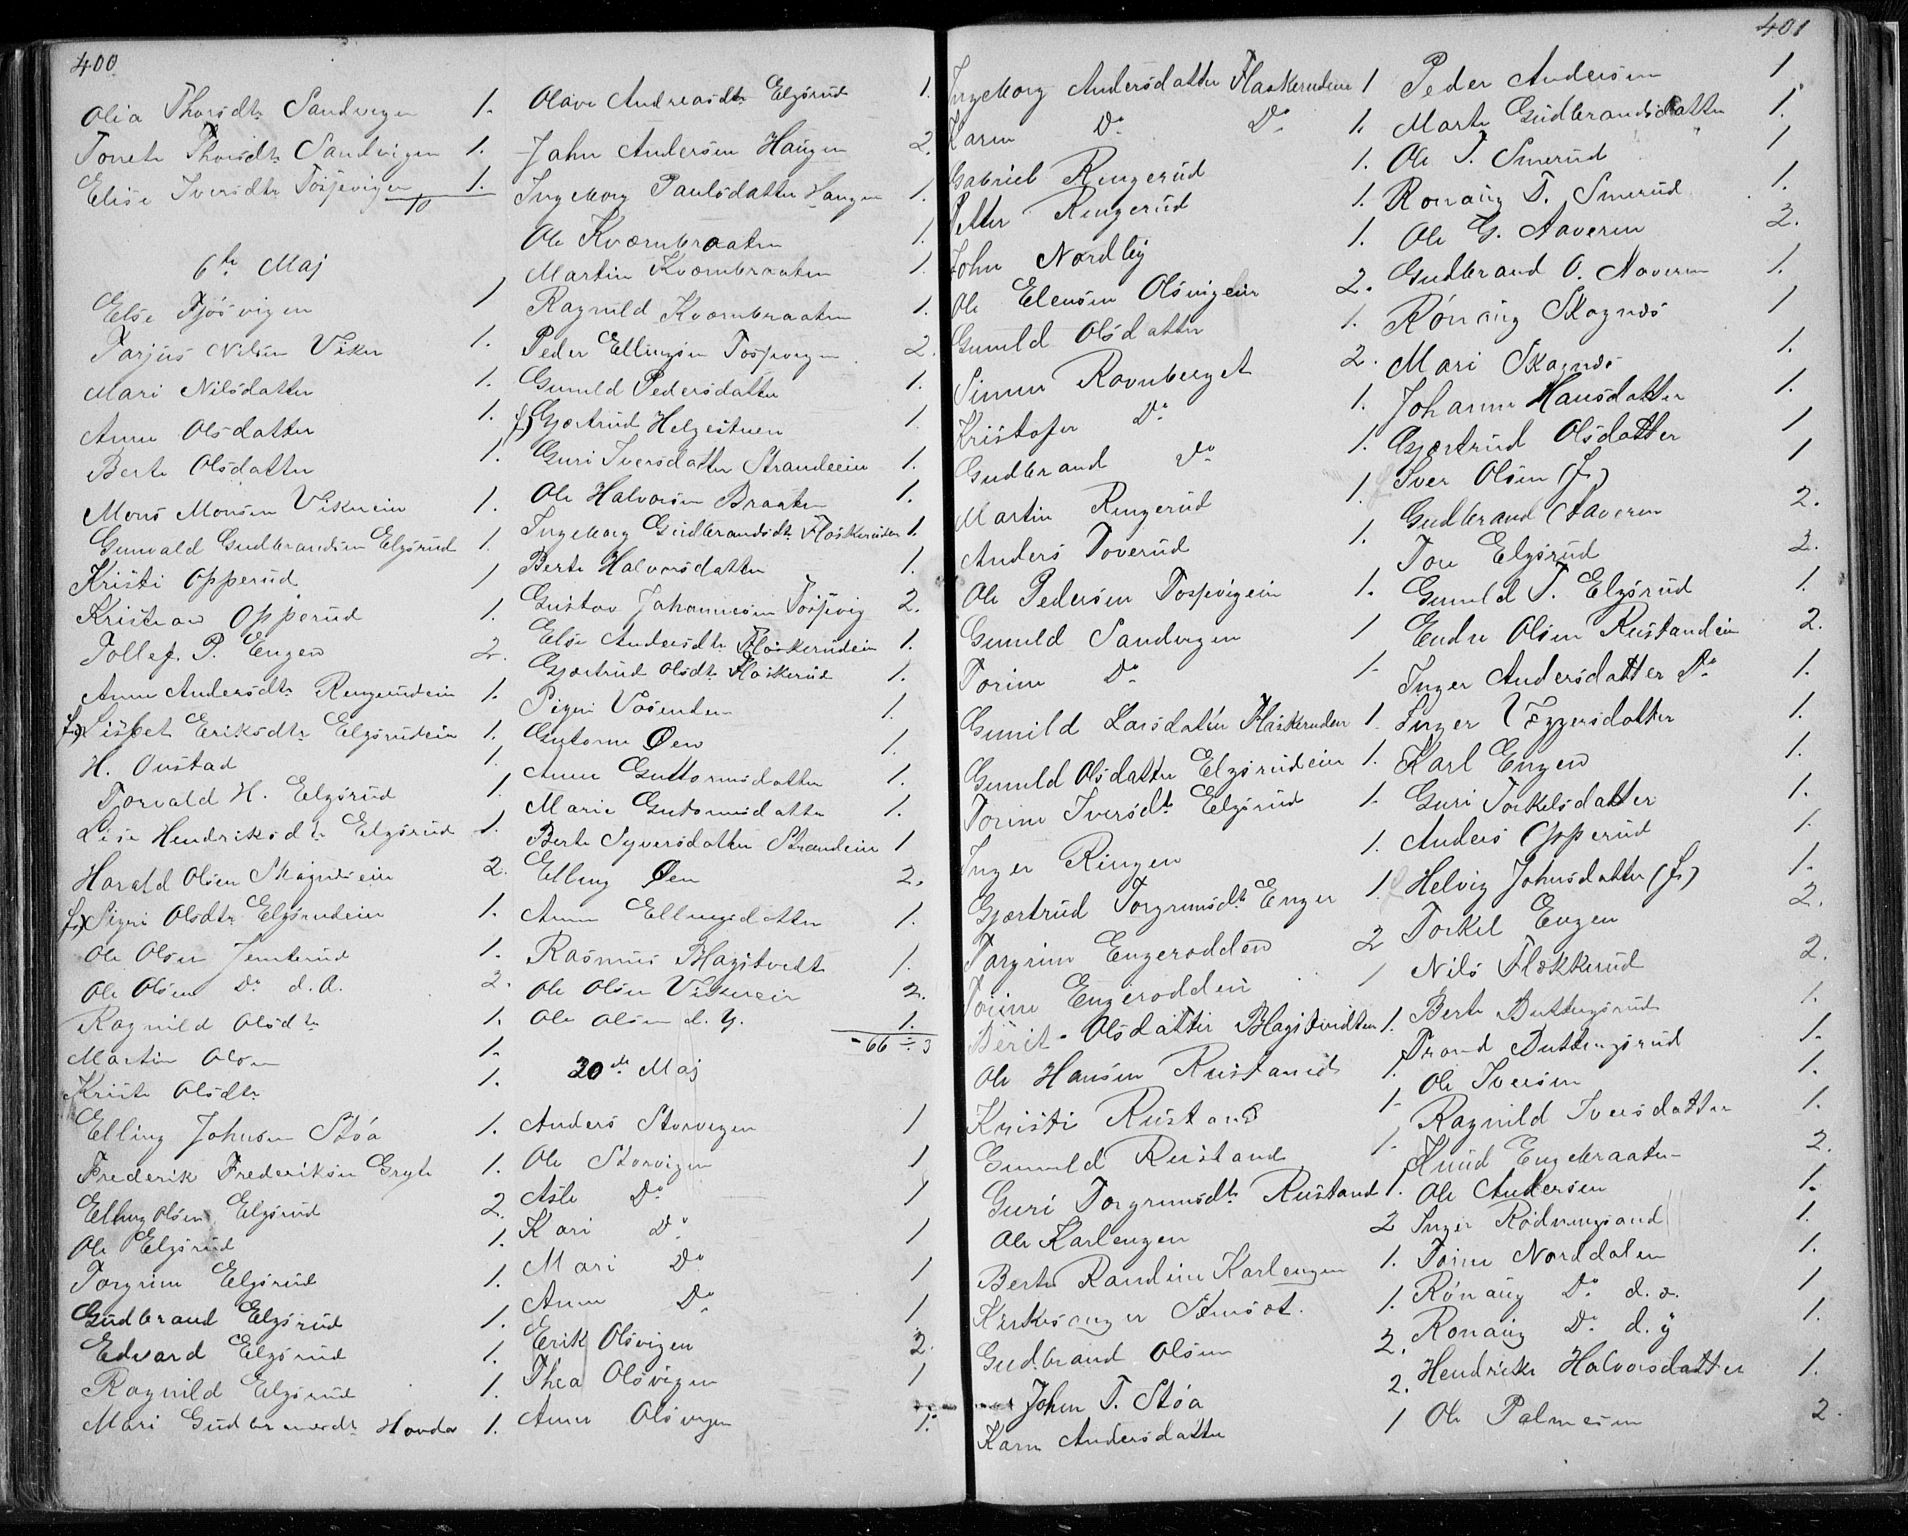 400
Olia Thorsdtr Sandvigen 1.
Tonete Thorsdtr Sandvigen 1.
Elise Iversdtr Tosjevigen 1.
10
6te Maj
Else Fjøsvigen 1
Tarjus Nilsen Viken 1.
Mari Nilsdatter 1.
Anne Olsdatter 1.
Berte Olsdatter 1.
Mons Monsen Vikneien 1.
Gunvald Gudbrandsen Elgsrud 1.
Kristi Opperud 1
Kristian Opperud 1.
Tollef P. Engen 2.
Anne Andersdtr Ringerudeie 1.
f) Lisbet Eriksdtr Elgsrudeie 1.
H. Onstad 1.
Torvald H. Elgsrud 1.
Lise Hendriksdtr Elgsrud 1.
Harald Olsen Skagnæseie 2.
f) Sigri Olsdtr Elgsrudeie 1.
Ole Olsen Jemterud 1.
Ole Olsen Do d. A. 2.
Ragnild Olsdtr 1.
Martin Olsen 1.
Kristi Olsdtr 1.
Elling Johnsen Støa 1.
Frederik Frederiksen Gryte 1.
Elling Olsen Elgsrud 2.
Ole Elgsrud 1.
Torgrim Elgsrud 1.
Gudbrand Elgsrud 1.
Edvard Elgsrud 1.
Ragnild Elgsrud 1.
Mari Gudbrandsdtr Hovda 1.
Olave Andreasdtr Elgsrud 1.
John Andersen Haugen 2.
Ingeborg Paulsdatter Haugen 1.
Ole Kværnbraaten 1.
Martin Kværnbraaten 1.
Ragnild Kværnbraaten 1.
Peder Ellingsen Tosjevigen 2.
Gunild Pedersdatter 1.
f) Gjertrud Helgestuen 1
Guri Iversdatter Strandeeie 1.
Ole Halvorsen Braaten 1.
Ingeborg Gudbrandsdtr Flaskeruden 1.
Berte Halvorsdatter 1.
Gustav Johannesen Tosjevig 2.
Else Andersdtr Flaskerudeie 1.
Gjertrud Olsdtr Flaskerud 1.
Pigen Vasenden 1.
Guttorm Øen 1.
Anne Guttormsdatter 1.
Marie Gutormsdatter 1.
Berte Syversdatter Strandeie 1
Elling Øen 2.
Anne Ellingsdatter 1.
Rasmus Bagstvedt 1.
Ole Olsen Vikneeie 2.
Ole Olsen d. Y. 1.
-66 ÷ 3
20de Maj
Anders Storvigen 1
Ole Storvigen 1
Asle Do 1
Kari Do 1
Mari Do 1
Anne Do 1
Erik Olsvigen 2.
Thea Olsvigen 1
Anne Olsvigen 1.
401
Ingeborg Andersdatter Flaskerudeie 1
Karen Do Do 1.
Gabriel Ringerud 1.
Petter Ringerud 1.
John Nordby 1.
Ole Elensen Olsvigeie 2.
Gunild Olsdatter 1.
Simen Ravnberget 2.
Kristofer Do 1.
Gudbrand Do 1.
Martin Ringerud 1.
Anders Toverud 1.
Ole Pedersen Tosjevigeie 1.
Gunild Sandvigen 1
Torine Do 1
Gunild Larsdatter Flaskeruden 1
Gunild Olsdatter Elgsrudeie 1.
Torine Iversdtr Elgsrud 1.
Inger Ringen 1.
Gjertrud Torgrimsdtr Enger 1.
Torgrim Engerodden 2
Torine Engerodden 1
Berit Olsdatter Bagstvedten 1.
Ole Hansen Rustand 1.
Kristi Rustand 1
Gunild Rustand 1
Guri Torgrimsdtr Rustand 1.
Ole Karlengen 2
Berte Randine Karlengen 1.
Kirkesanger Amsæt. 1.
Gudbrand Olsen 2.
John T. Støa 2.
Karen Andersdatter 1
Peder Andersen 1
Marte Gudbrandsdatter 1.
Ole T. Smerud 1
Rønaug T. Smerud 1.
Ole G. Naveren 2.
Gudbrand O. Naveren 1.
Rønaug Skagnæs 1
Mari Skagnæs 1.
Johanne Hansdatter 1.
Gjertrud Olsdatter 1
Iver Olsen (f) 1
Gudbrand Naveren 2.
Tore Elgsrud 2.
Gunild T. Elgsrud 1.
Endre Olsen Rustandeie 2.
Inger Andersdatter Do 1.
Inger Væggersdatter 1.
Karl Engen 1.
Guri Torkelsdatter 1.
Anders Opperud 1.
Helvig Johnsdatter (f) 1.
Torkel Engen 2.
Nils Flækkerud 2.
Berte Buttingsrud 1.
Trond Buttingsrud 1.
Ole Iversen 1.
Ragnild Iversdatter 1.
Knud Engebraaten 2.
Ole Andersen 1.
Inger Rødningsand 1.
Torine Norddalen 1.
Rønaug Do d. æ. 1
Rønaug Do d. y 1.
Hendrikke Halvorsdatter 1.
Ole Palmesen 2.